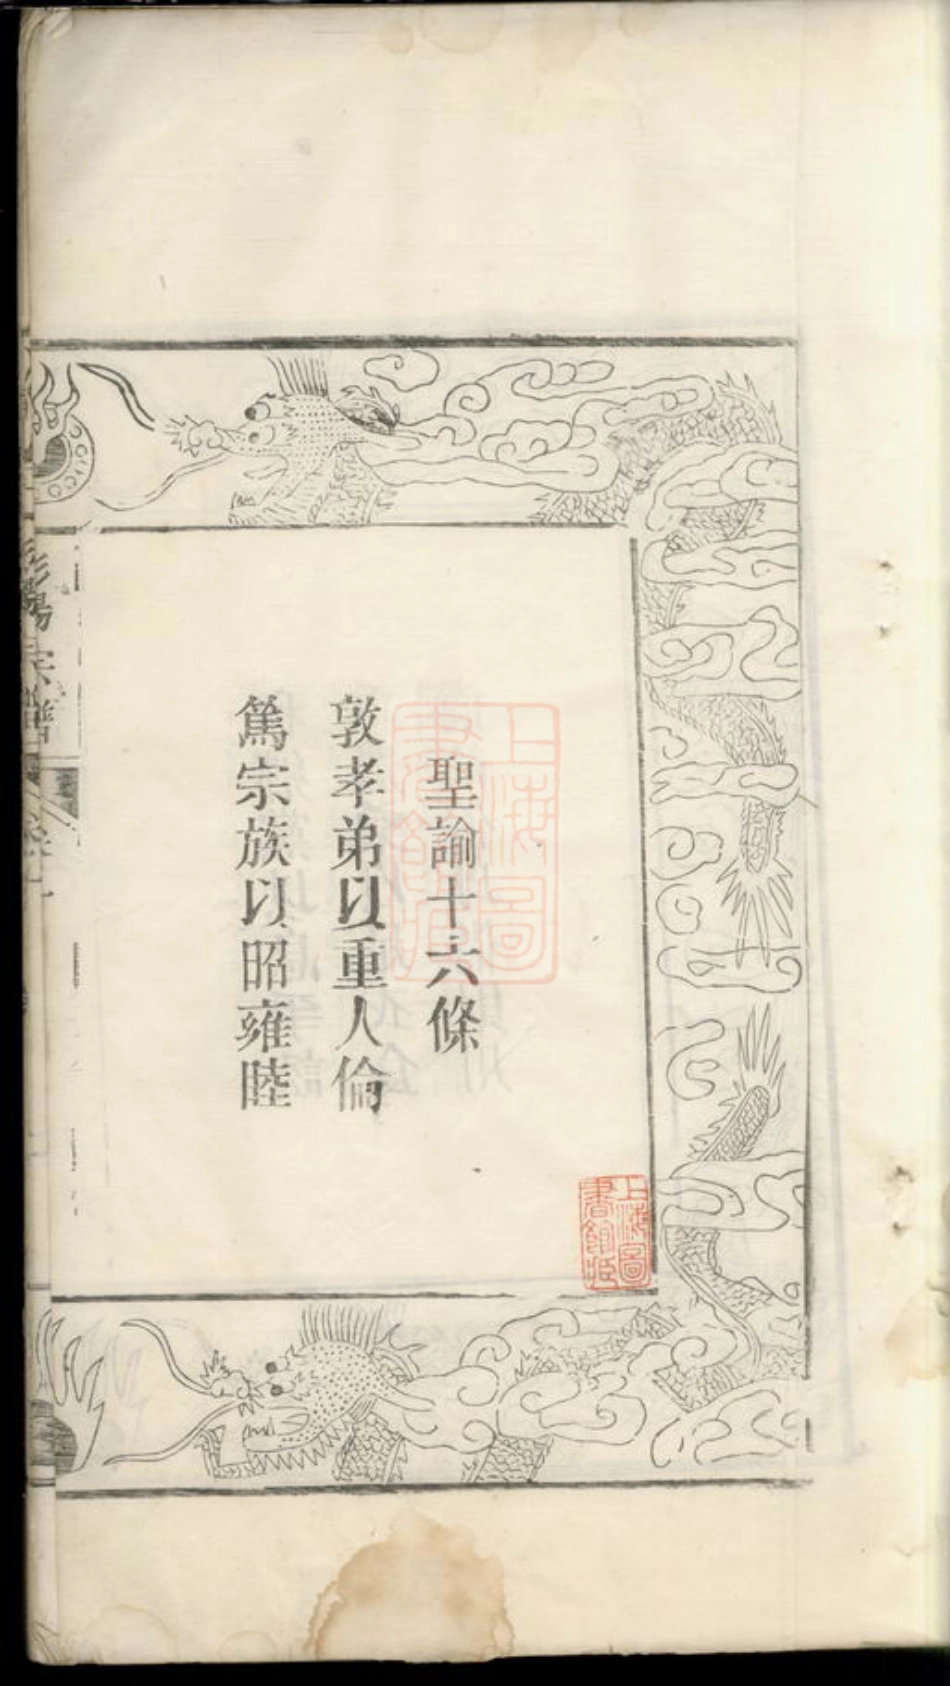 聖諭十六條
敦孝弟以重人倫
篤宗族以昭雍睦
宗譜
上海圖書館藏
上海圖書館藏